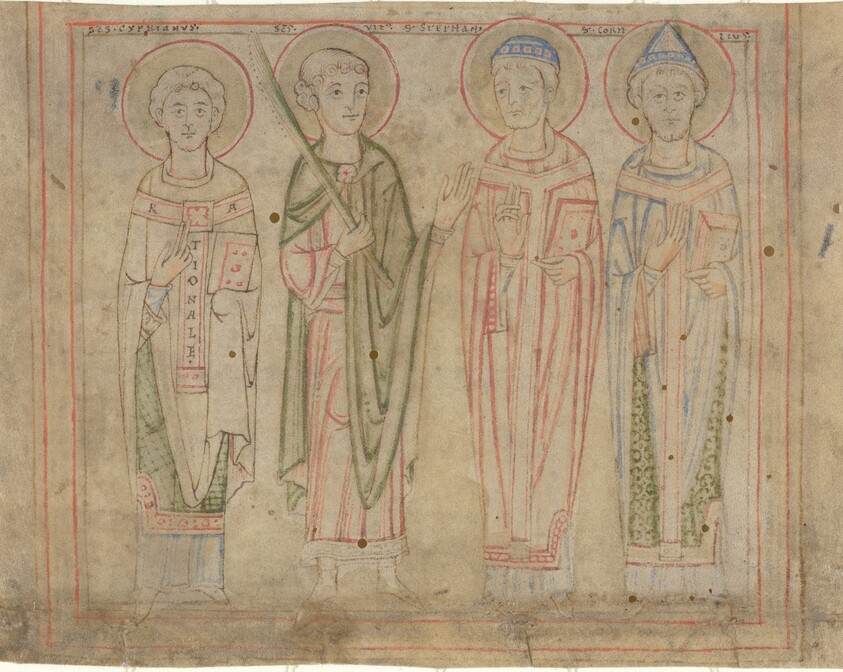 SCS · CYPRIANVS · SCS · VITꝰ S · STEPHAN; S · CORN ELIVS ·
R A
TIONALE ·